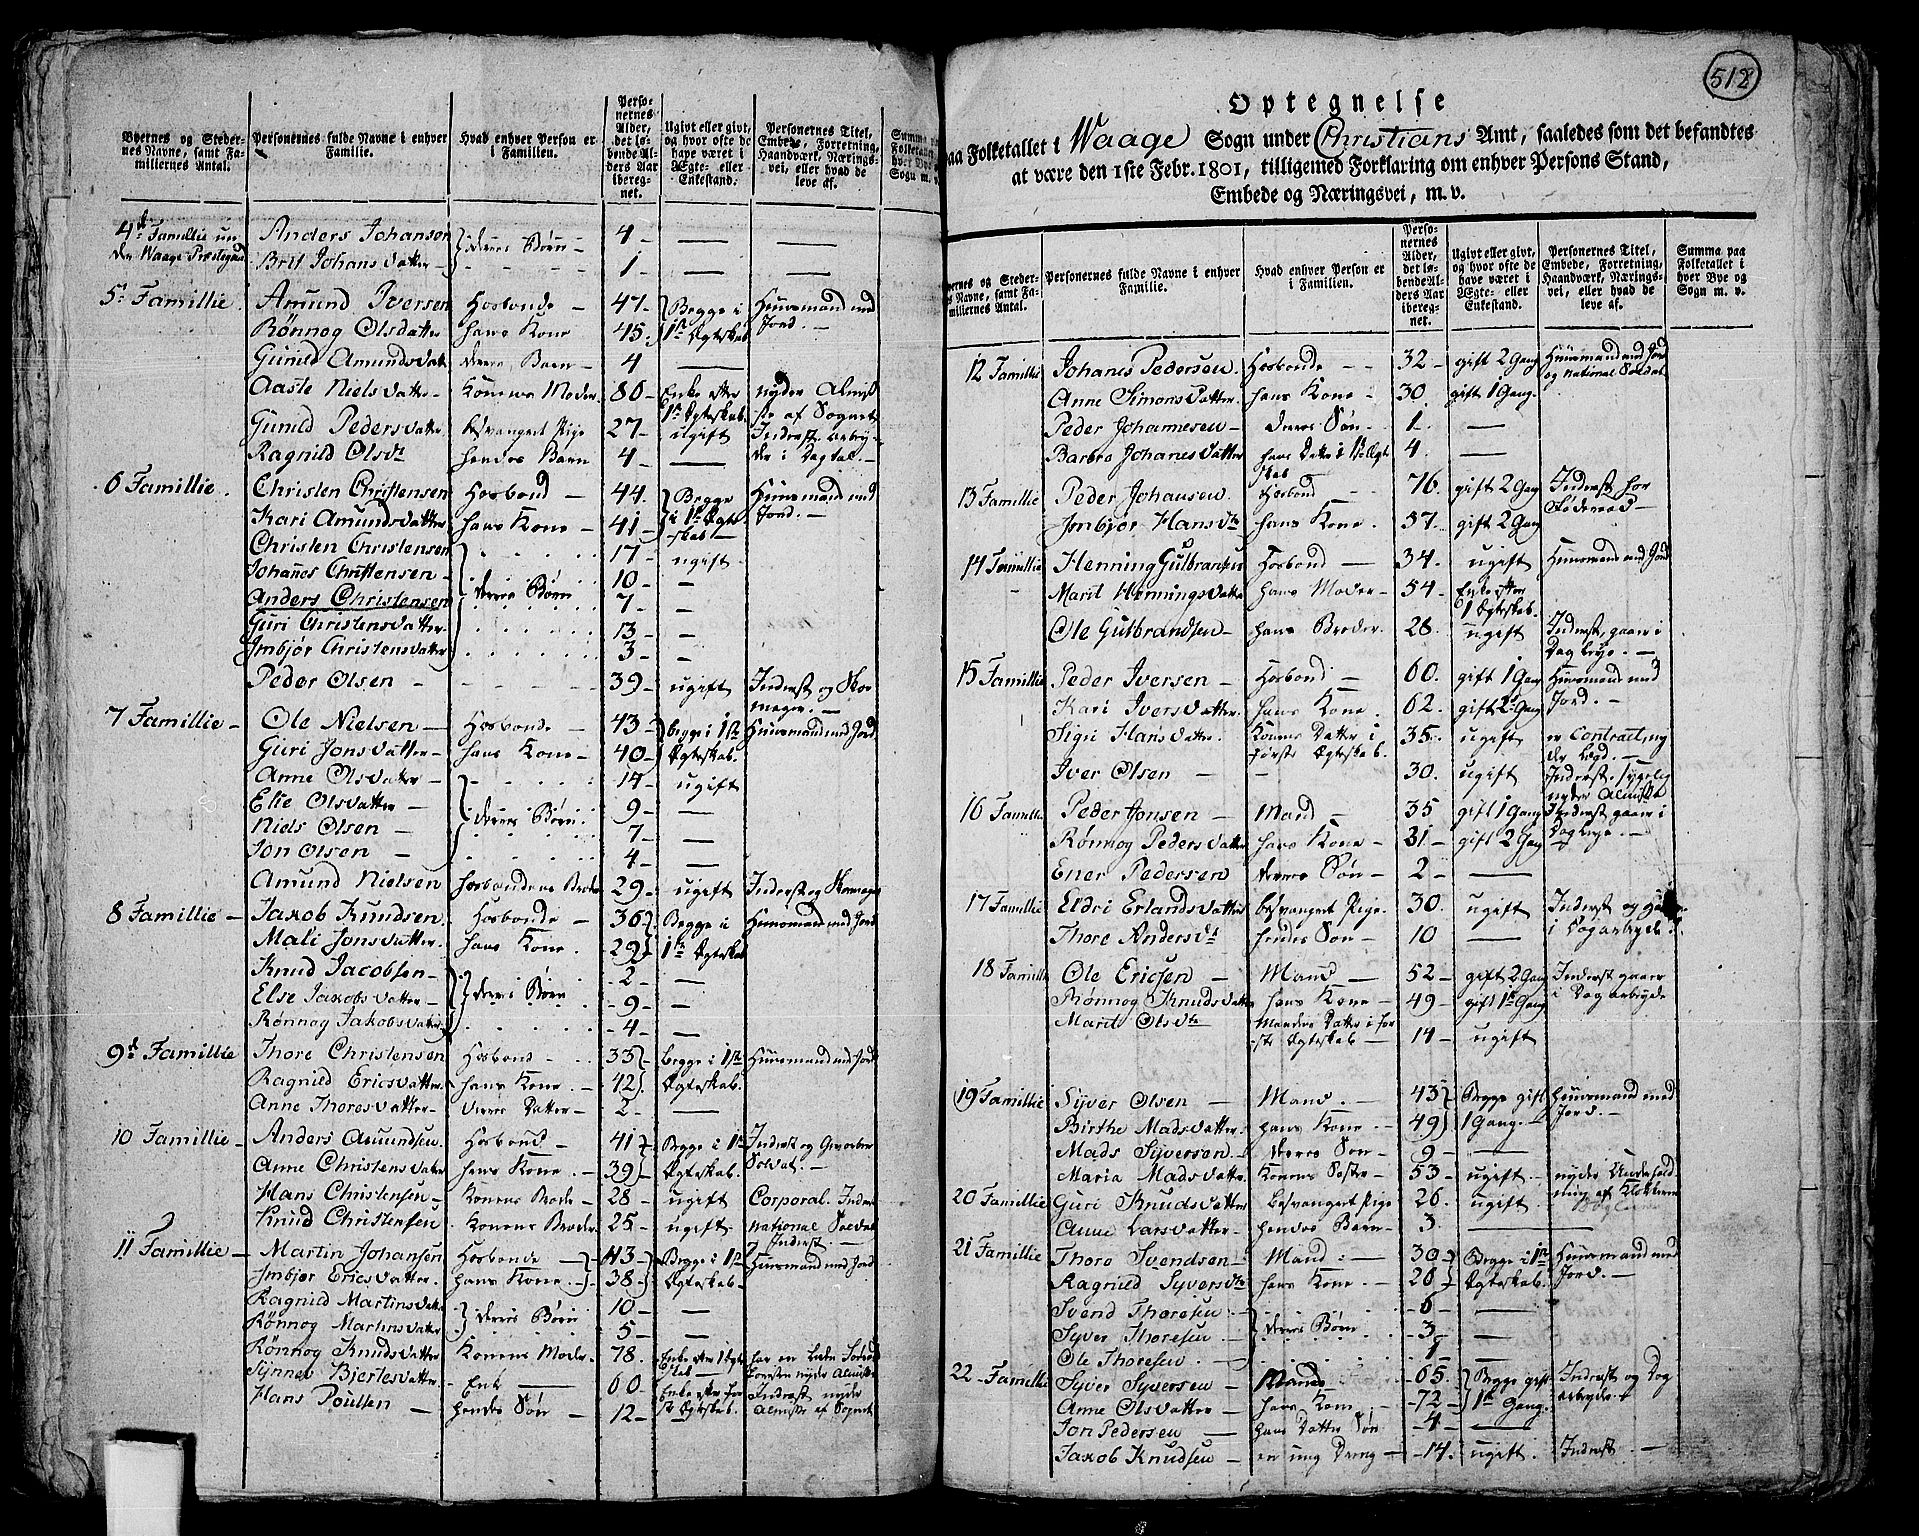 Byernes og Steder-
nes Navne, samt Fa-
miliernes Antal.
Personernes fulde Navne i enhver
Familie.
Hvad enhver Person er
i Familien.
Perso-
nernes
Alder,
det lø-
bende Al-
ders Aar
iberegnet.
Ugivt eller givt,
og hvor ofte de
have været i
Ægte- eller
Enkestand.
Personernes Titel,
Embede, Forretning,
Haandværk, Nærings-
vei, eller hvad de
leve af.
4de Famillie un-
der Waage Præstegaard
Anders Johansen } deres Børn - 4 -
Brit Johans Datter - 1 -
5te Famillie. Amund Iversen Hosbonde - 47 - } Begge i Huusmand med
Rønnog Olsdatter hans Kone 45 1ste Egteskab Jord. -
Gunild Amunds Datter deres Barn - 4 -
Aaste Niels Datter - Konens Moder. 80 - Enke efter nyder Almis-
1ste Egteskab se af Sognet
Gunild Peders Datter besvangret Pige 27 - ugift Inderst, arbey-
Ragnild Olsdr hendes Barn 4 - der i Dagtal. -
6 Famillie. Christen Christensen Hosbond - 44 } Begge Huusmand med
Kari Amunds Datter hans Kone - 41 i 1ste Egte- Jord. -
skab
Christen Christensen 17 - ugift
Johanes Christensen - 10 -
Anders Christensen } deres Børn 7 -
Guri Christens Datter 13 -
Imbjør Christens Datter 3 -
Peder Olsen - 39 - ugift Inderst og Skoe-
mager. -
7 Famillie - Ole Nielsen - Hosbonde - 43 } Begge i 1ste Huusmand med Jord
Guri Jons Datter - hans Kone - 40 Egteskab.
Anne Olsdatter - 14 ugift
Elie Olsdatter 9 -
Niels Olsen - } deres Børn 7 -
Jon Olsen - 4 -
Amund Nielsen Hosbondens Broder 29 - ugift Inderst og Skomager
8 Famillie - Jakob Knudsen. Hosbonde - 36 } Begge i Huusmand med Jord
Mali Jons Datter - hans Kone. 29 1ste Egteskab
Knud Jacobsen - 2 -
Else Jakobs Datter - } deres Børn - 9 -
Rønnog Jakobs Datter - 4 -
9de Famillie Thore Christensen Hosbond - 33 } Begge i 1ste Huusmand med Jord
Ragnild Erics Datter. hans Kone. 42 Egteskab.
Anne Thores Datter - deres Datter - 2 -
10 Famillie - Anders Amundsen. Hosbond - 41 } Begge i 1ste Inderst og Gevorben
Anne Christens Datter hans Kone. - 39 Egteskab. Soldat. -
Hans Christensen - Konens Broder - 28 ugift Corporal. Inder
Knud Christensen Konens Broder. 25 - ugift National Soldat
og Inderst -
11 Famillie - Martin Johansen Hosbonde - 43 } Begge i 1ste Huusmand med Jord
Imbjør Erics Datter. hans Kone. 38 Egteskab.
Ragnild Martins Datter } deres Børn 10 -
Rønnog Martins Datter 5 -
Rønnog Knuds Datter Konens Moder - 78. Enke efter 1 Egte-
skab -
Synnev Bjertes Datter. - Enke 60 - Enke efter før-
ste Egteskab. Inderst nyder
Hans Poulsen - hendes Søn 12 - Almisse af Sognet
512
Optegnelse
paa Folketallet i Waage Sogn under Christians Amt, saaledes som det befandtes
at være den 1ste Febr. 1801, tilligemed Forklaring om enhver Persons Stand,
Embede og Næringsvei, m. v.
Personernes fulde Navne i enhver
Familie.
Hvad enhver Person er
i Familien.
Perso-
nernes
Alder,
det lø-
bende Al-
ders Aar
iberegnet.
Ugivt eller givt,
og hvor ofte de
have været i
Ægte- eller
Enkestand.
Personernes Titel,
Embede, Forretning,
Haandværk, Nærings-
vei, eller hvad de
leve af.
Summa paa
Folketallet i
hver Bye og
Sogn m. v.
12 Famillie Johanes Pedersen Hosbonde - - 32 - gift 2 Gang Huusmand med Jord
og national Soldat
Anne Simons Datter. hans Kone - 30. gift 1 Gang.
Peder Johannesen - deres Søn - 1. -
Barbra Johanes Datter hans Datter i 1ste Egte- 4. -
skab
13 Famillie Peder Johansen. Hosbond - 76. gift 2 Gang Inderst har
Føderaad -
Imbjør Hans Dtr hans Kone. 57. gift 2 Gang
14 Famillie Henning Gulbransen Hosbond - 34. ugift Huusmand med Jord
Marit Hennings Datter hans Moder - 54 - Enke efter
1 Egteskab.
Ole Gulbrandsen - hans Broder. 28. ugift Inderst, gaaer i
Dag leye. -
15 Famillie Peder Iversen - Hosbond - 60. gift 1 Gang Huusmand med
Kari Ivers Datter. hans Kone. 62. gift 2 Gang Jord. -
Sigri Hans Datter. Konens Datter i 35. ugift er Contract, ny
første Egteskab. der Legd. -
Iver Olsen - - 30. ugift Inderst. Sygelig
nyder Almisse
16 Famillie Peder Jonsen - Mand - 35 gift 1 Gang Inderst gaaer i
Rønnog Peders Datter hans Kone - 31 - gift 2 Gang Dag leye. -
Ener Pedersen deres Søn - 2 -
17 Famillie Eldri Erlands Datter besvangret Pige. 30. ugift Inderst og
Thore Andersdr hendes Søn - 10 - i Dag arbeyde
18 Famillie Ole Ericsen - Mand - 52 - gift 2 Gang Inderst gaaer
Rønnog Knuds Datter hans Kone - 49 - gift 1ste Gang i Dag arbeyde
Marit Olsdtr Mandens Datter i før-
ste Egteskab - 14 - ugift
19 Famillie Syver Olsen - Mand. - 43 } Begge gift Huusmand med
Birthe Mads Datter. hans Kone. 49 1 Gang. - Jord. -
Mads Syversen - deres Søn - 9 -
Maria Mads Datter. Konens Søster - 53 - ugift. nyder Underhold-
ning af Klokkeren
20 Famillie Guri Knuds Datter besvangret Pige 26 - ugift.
Anne Lars Datter - hendes Barn - 3. -
21 Famillie Thore Svendsen. Mand. - 30 } Begge i 1ste Huusmand med
Ragnild Syvers Dtr hans Kone. 26 Egteskab. Jord. -
Svend Thoresen - 6 -
Syver Thoresen - } deres Børn - 3 -
Ole Thoresen - 1 -
22 - Famillie Syver Syversen - Mand - 65. } Begge gift Inderst og Dag
Anne Ols Datter - hans Kone - 72 - 1ste Gang. arbeyder
Jon Pedersen - hans Datter Søn - 4 -
Jakob Knudsen - en ung Dreng - 14. ugift - Inderst -